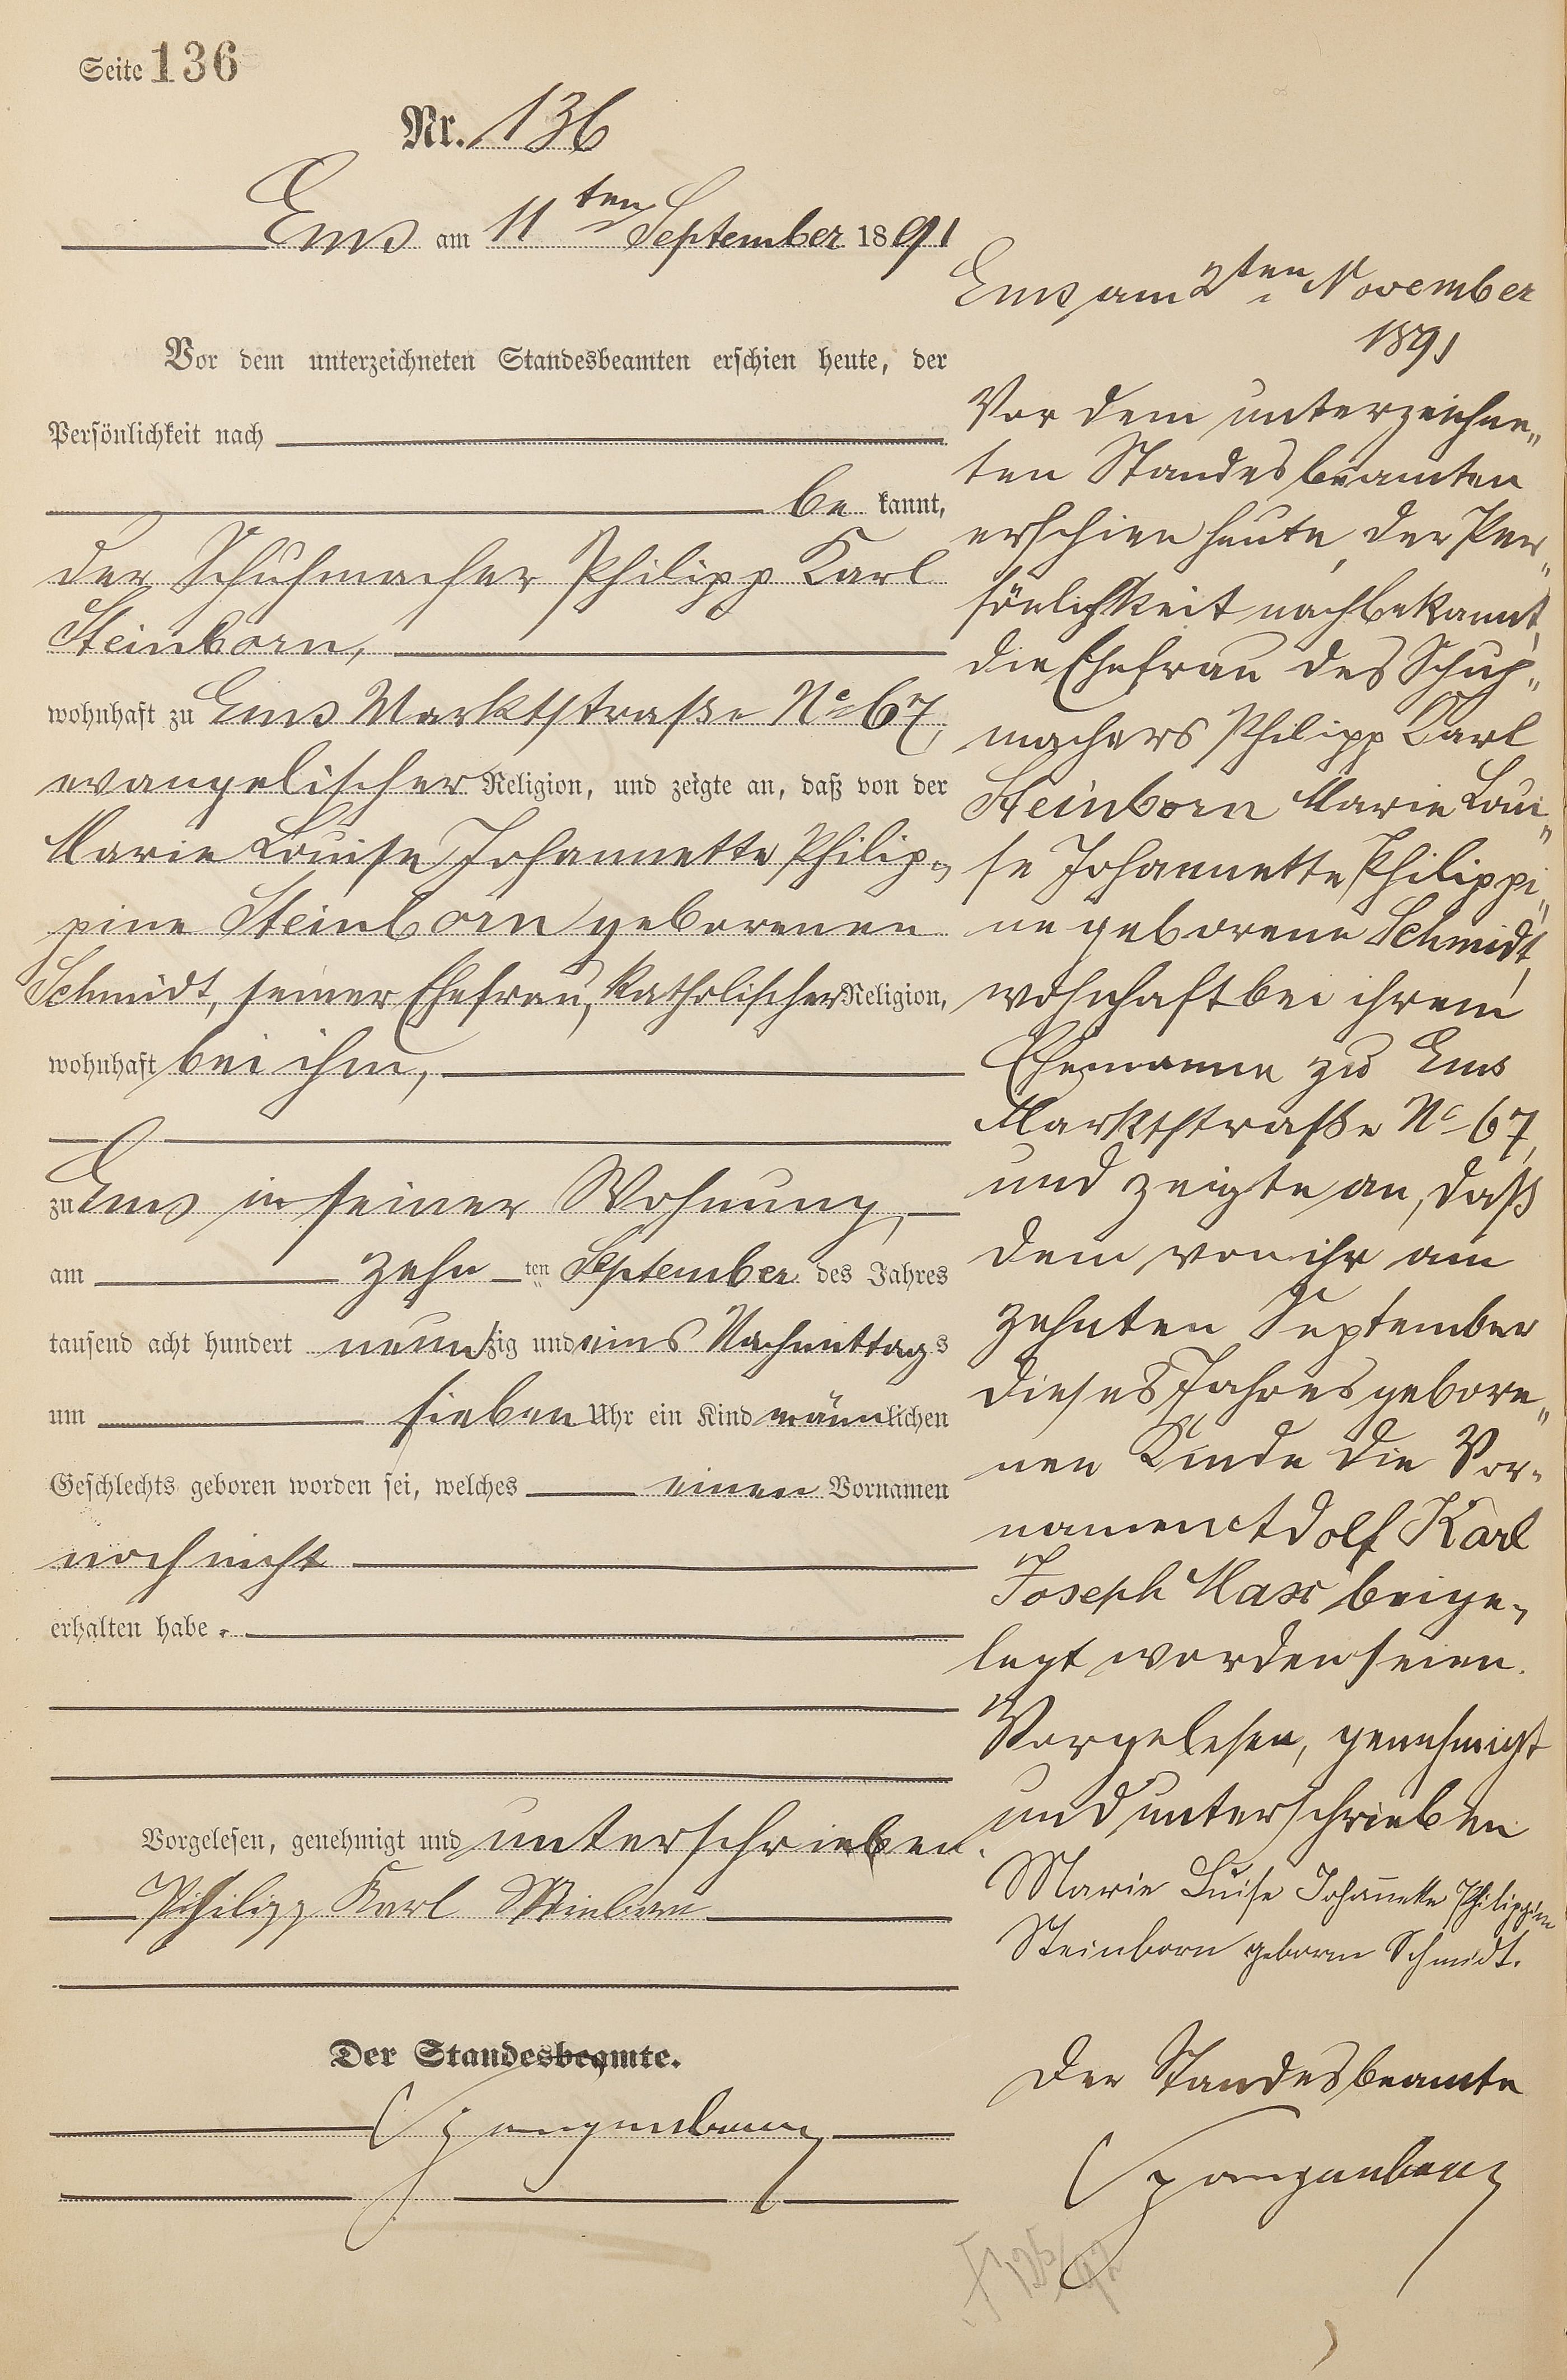 Seite 136
Nr. 136
Ems am 11ten September 1891
Vor dem unterzeichneten Standesbeamten erschien heute, der
Persönlichkeit nach
be kannt,
der Schuhmacher Philipp Karl
Steinborn,
wohnhaft zu Ems Marktstraße No 67,
evangelischer Religion, und zeigte an, daß von der
Marie Louise Johannette Philip„
pine Steinborn geborenen
Schmidt, seiner Ehefrau, katholischer Religion,
wohnhaft bei ihm,
zu Ems in seiner Wohnung,
am zehn ten September des Jahres
tausend acht hundert neunzig und eins Nachmittags
um sieben Uhr ein Kind männlichen
Geschlechts geboren worden sei, welches einen Vornamen
noch nicht
erhalten habe.
Vorgelesen, genehmigt und unterschrieben.
Philipp Karl Steinborn
Der Standesbeamte.
Ems am 2ten November
1891
Vor dem unterzeichne„
ten Standesbeamten
erschien heute, der Per„
sönlichkeit nach bekannt,
die Ehefrau des Schuh„
machers Philipp Karl
Steinborn Marie Loui„
se Johannette Philippi„
ne geborene Schmidt,
wohnhaft bei ihrem
Ehemanne zu Ems
Marktstraße No 67,
und zeigte an, daß
dem von ihr am
zehnten September
dieses Jahres gebore„
nen Kinde die Vor-
namen Adolf Karl
Joseph Max beige„
legt worden seien.
Vorgelesen, genehmigt
und unterschrieben
Marie Luise Johannette Philippine
Steinborn geborne Schmidt.
Der Standesbeamte